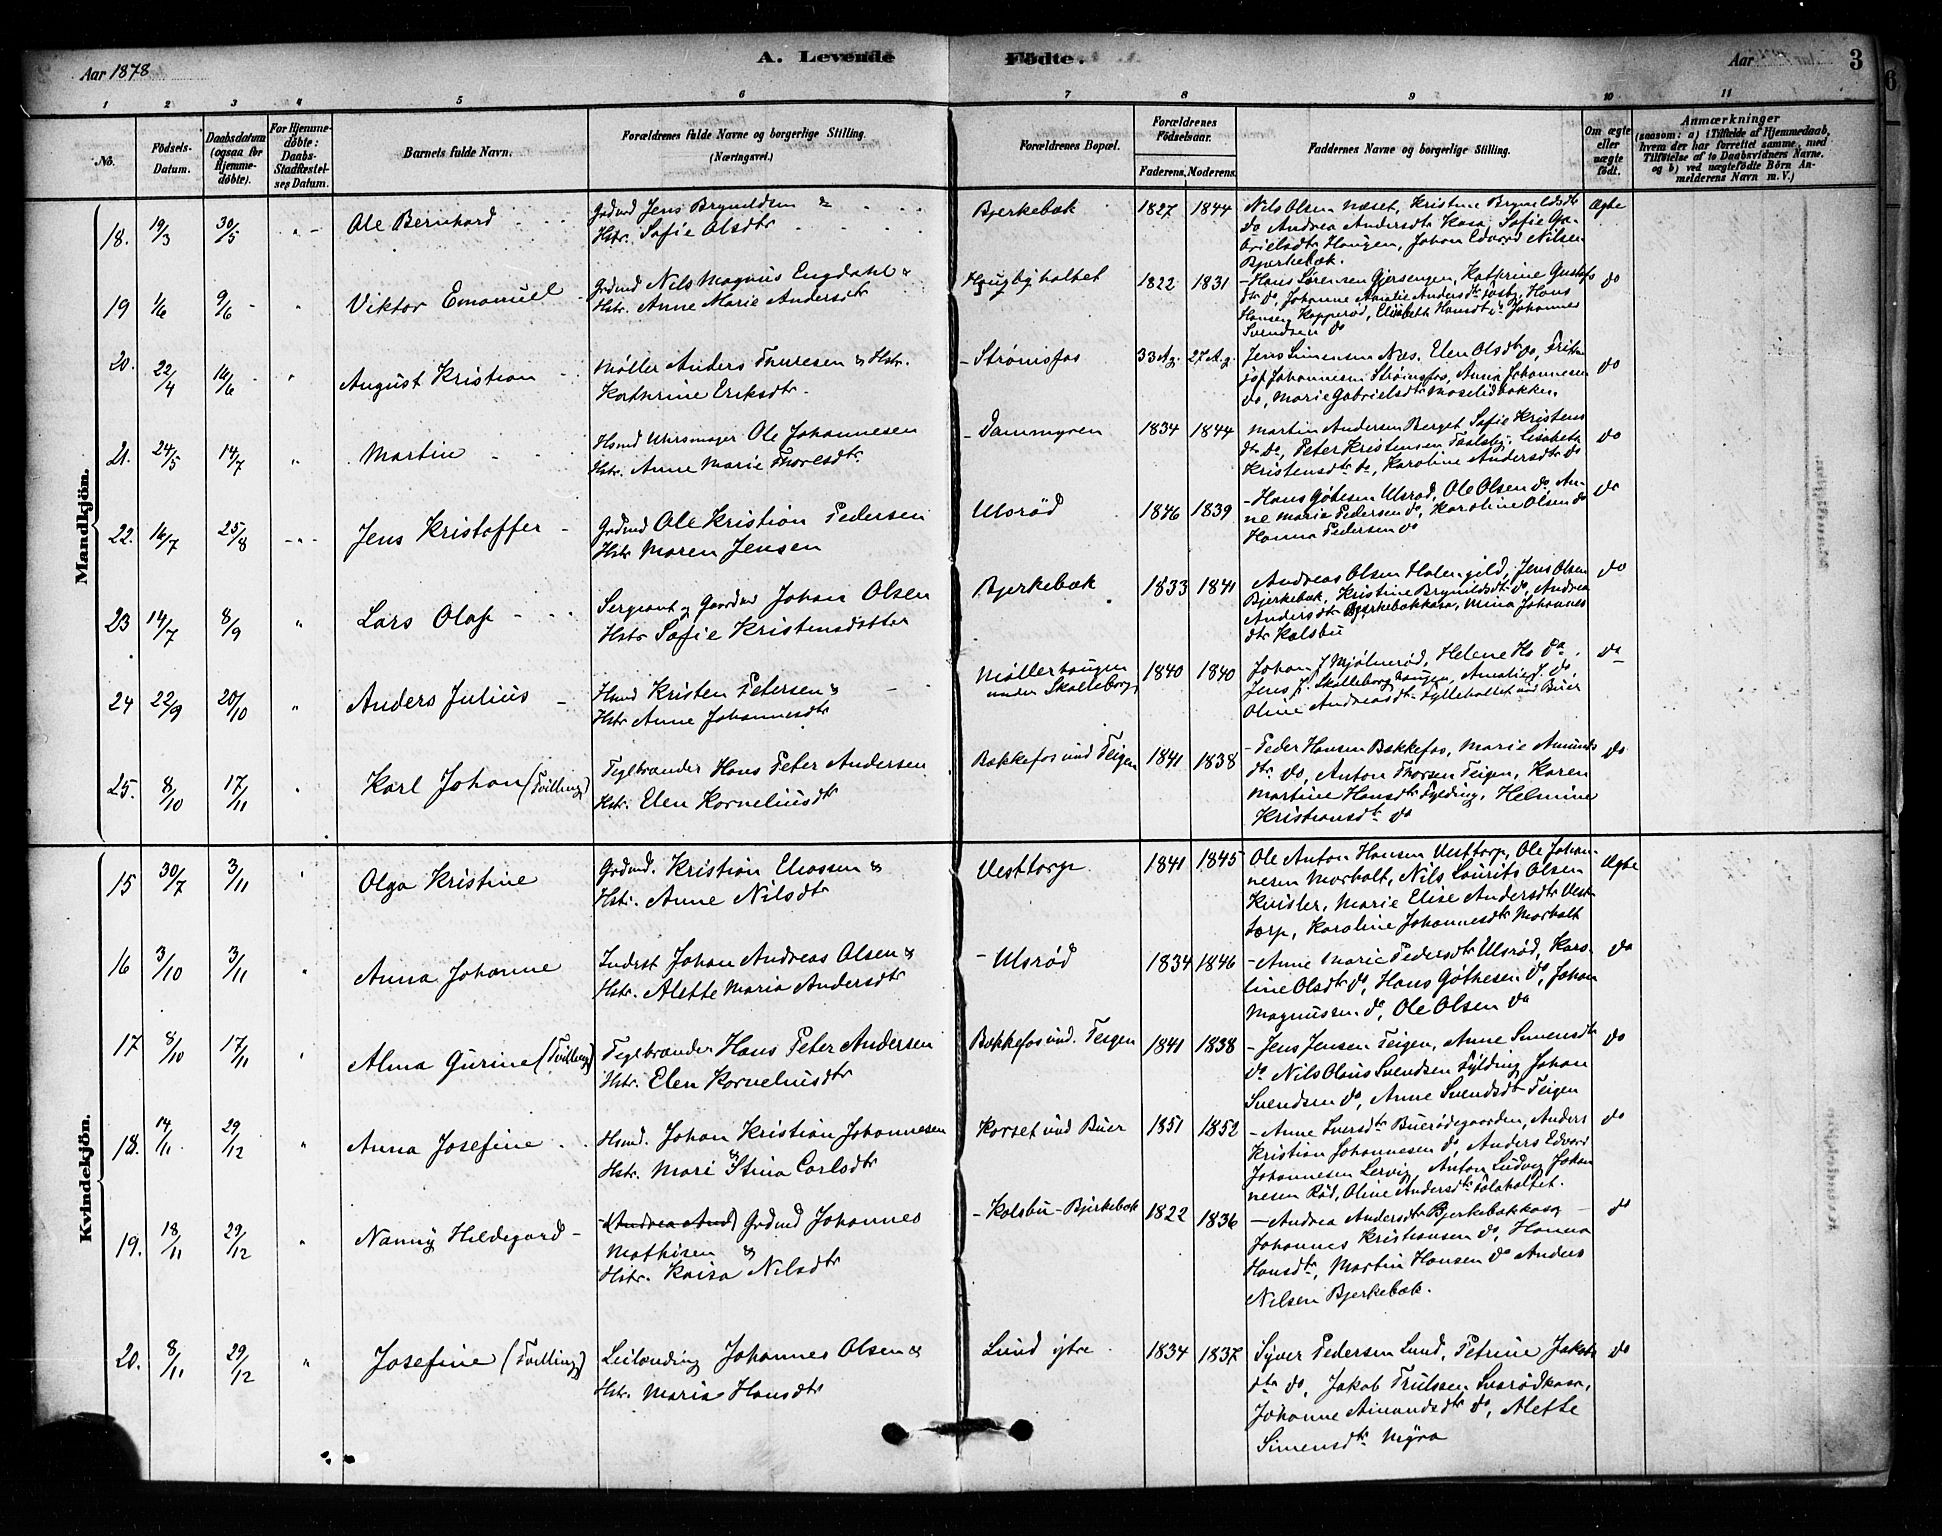 Aar 1878
A. Levende Födte.
Aar 3
1 2 3 4 5 6 7 8 9 10 11
No.
Födsels-Datum.
Daabsdatum (ogsaa for Hjemme-döbte).
For Hjemme-döbte: Daabs-Stadfæstel-ses Datum.
Barnets fulde Navn.
Forældrenes fulde Navne og borgerlige Stilling. (Næringsvei.)
Forældrenes Bopæl.
Forældrenes Födselsaar.
Faderens. Moderens.
Faddernes Navne og borgerlige Stilling.
Om ægte eller uægte födt.
Anmærkninger
(saasom: a) i Tilfælde af Hjemmedaab,
hvem der har forrettet samme, med
Tilföielse af to Daabsvidners Navne.
og b) ved uægtefödte Börn An-
melderens Navn m. V.)
Mandkjön.
18. 19/3 30/5 " Ole Bernhard
Grdmd Jens Brynildsen &
Hstr. Sofie Olsdtr
Bjerkebæk 1827 1844
Nils Olsen Næset, Kristine Brynildsdtr
do Andrea Andersdtr Kasa, Sofie Ga-
brielsdtr Haugen, Johan Edvard Nilsen
Bjerkebæk.
Ægte
19 1/6 9/6 " Viktor Emanuel
Grdmd Nils Magnus Engdahl &
Hstr. Anne Marie Andersdtr
Haugbyholtet 1822 1831
Hans Sørensen Gjersengen, Kathrine Gustafs
dtr do, Johanne Amalie Andersdtr Fosby, Hans
Hansen Kopperød, Elisabeth Hansdtr do Johannes
Svendsen do
do
20. 22/4 16/6 " August Kristian
Møller Anders Thuresen & Hstr.
Kathrine Eriksdtr.
Strømsfos 33 Ag. 27 Ag.
Jens Simensen Næs, Elen Olsdtr do, Frith
jof Johannesen Strømsfos, Anna Johannesen
do, Marie Gabrielsdtr Moselidbakken.
do
21. 24/5 14/7 " Martin
Hsmd Uhrmager Ole Johannesen
Hstr. Anne Marie Thoresdtr.
Dammyren 1834 1844
Martin Andersen Berget Sofie Kristens
dtr do, Peter Kristensen Taalsby, Lisabeth
Kristensdtr do, Karoline Andersdtr do
do
22. 16/7 25/8 " Jens Kristoffer
Grdmd Ole Kristian Pedersen
Hstr Maren Jensen
Ulsrød 1846 1839
Hans Gøthesen Ulsrød, Ole Olsen do, An-
ne Maria Pedersen do, Karoline Olsen do
Hanna Pedersen do
do
23 14/7 8/9 " Lars Olaf
Sergeant og Gaardmd Johan Olsen
Hstr Sofie Kristensdatter
Bjerkebæk 1833 1841
Andreas Olsen Holengild, Jens Olsen
Bjerkebæk, Kristine Brynildsdtr do, Andrea
Andersdtr Bjerkebækkasa, Mina Johannes
dtr Kolsbu
do
24 22/9 20/10 " Anders Julius
Hsmd Kristen Petersen &
Hstr Anne Johannesdtr
Møllerhaugen
under Skolleborg 1840 1840
Johan J Mjølnerød, Helene Ho do.
Jens J. Skolleborghaugen, Amalie J. do
Oline Andreasdtr Fylleholtet und Buer
do
25. 8/10 17/11 " Karl Johan (Tvilling)
Teglbrænder Hans Peter Andersen
Hstr. Elen Korneliusdtr
Bækkefos und Teigen 1841 1838
Peder Hansen Bækkefos, Marie Amunds
dtr do, Anton Thorsen Teigen, Karen
Martine Hansdtr Fylding, Helmine
Kristiansdtr do
do
Kvindekjön.
15 30/7 3/11 " Olga Kristine
Grdmd. Kristian Eliassen &
Hstr. Anne Nilsdtr
Vesttorp 1841 1845
Ole Anton Hansen Vesttorp, Ole Johan-
nesen Morholt, Nils Laurits Olsen
Kvisler, Marie Elise Andersdtr Vest-
torp, Karoline Johannesdtr Morholt
Ægte
16 3/10 3/11 " Anna Johanne
Inderst Johan Andreas Olsen &
Hstr. Alette Maria Andersdtr
Ulsrød 1834 1846
Anne Marie Pedersdtr Ulsrød, Karo-
line Olsdtr do, Hans Gøthesen do, Johan
Magnussen do, Ole Olsen do
do
17 8/10 17/11 " Alma Gurine (Tvilling)
Teglbrænder Hans Peter Andersen
Hstr. Elen Korneliusdtr
Bækkefos und. Teigen 1841 1838
Jens Jensen Teigen, Anne Simensdtr
do Nils Olaus Svendsen Fylding Johan
Svendsen do, Anne Svendsdtr Teigen
do
18. 14/11 29/12 " Anna Josefine
Hsmd. Johan Kristian Johannesen
& Hstr. Mari Stina Carlsdtr
Korset und Buer 1851 1852
Anne Iversdtr Buerødegaarden, Anders
Kristian Johannesen do, Anders Edvard
Johannesen Lervig, Anton Ludvig Johan
nesen Rød, Oline Andersdtr Folaholtet.
do
19. 18/11 29/12 " Nanny Hildegard
(Andrea And) Grdmd Johannes
Mathisen &
Hstr. Kaisa Nilsdtr
Kolsbu - Bjerkebæk 1822 1836
Andrea Andersdtr Bjerkebækkasa
Johannes Kristiansen do, Hanna
Hansdtr, Martin Hansen do Anders
Nilsen Bjerkebæk.
do
20. 8/11 29/12 " Josefine (Tvilling)
Leilænding Johannes Olsen &
Hstr. Maria Hansdtr
Lund ytre 1834 1837
Syver Pedersen Lund, Petrine Jakobs
dtr do, Jakob Trulssen Svarødkasa,
Johanne Amundsdtr do, Alette
Simensdtr Myra
do
6